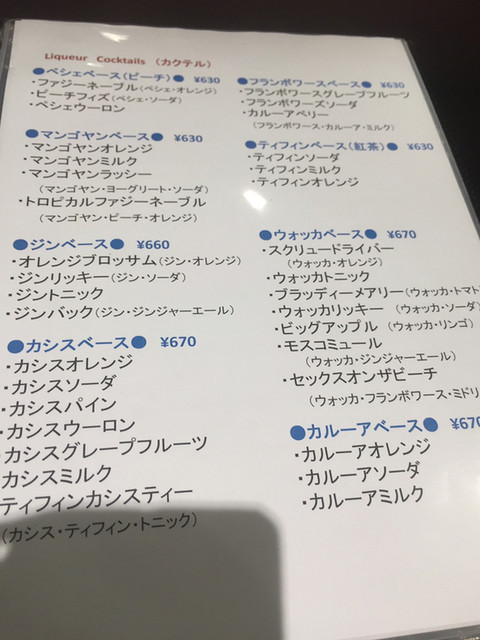 Liqueur Cocktails （カクテル）
●ペシェベース（ピーチ）● ¥630
・ファジーネーブル（ペシェ・オレンジ）
・ピーチフィズ（ペシェ・ソーダ）
・ペシェウーロン
●マンゴヤンベース● ¥630
・マンゴヤンオレンジ
・マンゴヤンミルク
・マンゴヤンラッシー
（マンゴヤン・ヨーグリート・ソーダ）
・トロピカルファジーネーブル
（マンゴヤン・ピーチ・オレンジ）
●ジンベース● ¥660
・オレンジブロッサム（ジン・オレンジ）
・ジンリッキー（ジン・ソーダ）
・ジントニック
・ジンバック（ジン・ジンジャーエール）
●カシスベース● ¥670
・カシスオレンジ
・カシスソーダ
・カシスパイン
・カシスウーロン
・カシスグレープフルーツ
・カシスミルク
ティフィンカシスティー
（カシス・ティフィン・トニック）
●フランボワースベース● ¥630
・フランボワースグレープフルーツ
・フランボワーズソーダ
・カルーアベリー
（フランボワース・カルーア・ミルク）
●ティフィンベース（紅茶）● ¥630
・ティフィンソーダ
・ティフィンミルク
・ティフィンオレンジ
●ウォッカベース● ¥670
・スクリュードライバー
（ウォッカ・オレンジ）
・ウォッカトニック
・ブラッディーメアリー（ウォッカ・トマト
・ウォッカリッキー （ウォッカ・ソーダ）
・ビッグアップル （ウォッカ・リンゴ）
・モスコミュール
（ウォッカ・ジンジャーエール）
・セックスオンザビーチ
（ウォッカ・フランボワース・ミドリ
●カルーアベース● ¥670
・カルーアオレンジ
・カルーアソーダ
・カルーアミルク